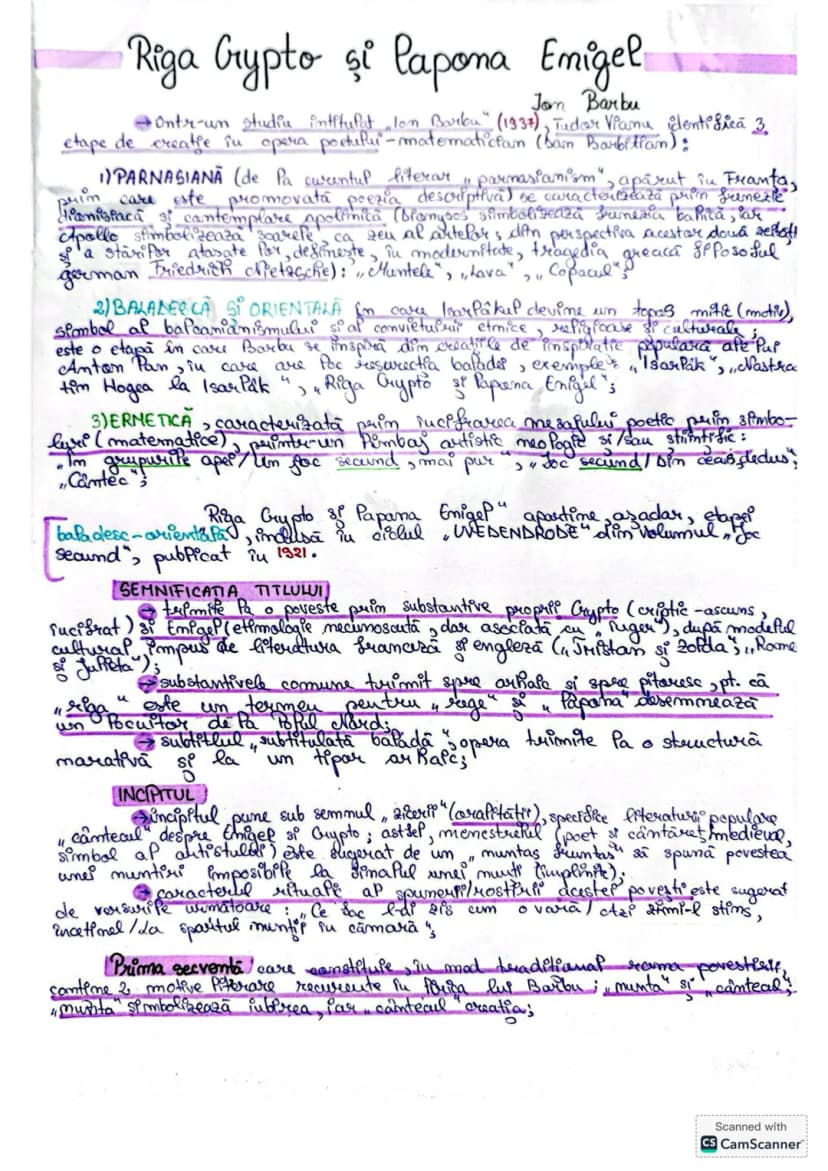 Riga Crypto și lapona Enigel
Ion Barbu
→ Într-un studiu intitulat „Ion Barbu" (1937), Tudor Vianu identifică 3
etape de creație în opera poetului-matematician (Dan Barbilian):
1) PARNASIANĂ (de la curentul literar „parnasianism", apărut în Franța,
prin care este promovată poezia descriptivă) se caracterizează prin frenezie
dionisiacă și contemplare apolinică (Dionysos simbolizează frenezia bahică, iar
Apollo simbolizează soarele, ca zeu al artelor; din perspectiva acestor două zeități
și a stărilor atașate lor, definește, în modernitate, tragedia greacă filosoful
german Friedrich Nietzsche): „Muntele", „Lava", „Copacul";
2) BALADESCĂ ȘI ORIENTALĂ în care Isarlâkul devine un topos mitic (motiv),
simbol al balcanianismului și al conviețuirii etnice, religioase și culturale;
este o etapă în care Barbu se inspiră din creațiile de inspirație populară ale lui
Anton Pan, în care are loc resurecția baladei, exemple: „Isarlâk", „Nastra
tin Hogea la Isarlâk", „Riga Crypto și lapona Enigel";
3) ERMETICĂ, caracterizată prin încifrarea mesajului poetic prin simbo-
luri (matematice), printr-un limbaj artistic neologic și/sau științific:
„În grupurile apei/Un joc secund, mai pur", „Joc secund/Din ceas, dedus";
„Cântec";
„Riga Crypto și lapona Enigel" aparține, așadar, etapei
baladesc-orientală, inclusă în ciclul „UVEDENRODE" din volumul „Joc
secund", publicat în 1921.
SEMNIFICAȚIA TITLULUI
→ trimite la o poveste prin substantive proprii Crypto (criptic-ascuns,
încifrat) și Enigel (etimologie necunoscută, dar asociată cu „înger"), după modelul
cultural, impus de literatura franceză și engleză („Tristan și Isolda"; „Romeo
și Julieta");
→ substantivele comune trimit spre arhaic și spre pitoresc, pt. că
„riga" este un termen pentru „rege" și „lapona" desemnează
un locuitor de la Polul Nord;
→ subtitlul „subtitulată baladă", opera trimite la o structură
narativă și la un tipar arhaic;
INCIPITUL
→ incipitul pune sub semnul „zicerii" (oralității), specifice literaturii populare
„cântecul" despre Enigel și Crypto; astfel, menestrelul (poet și cântăreț medieval,
simbol al artistului) este sugerat de un „nuntaș fruntaș" să spună povestea
unei nuntiri imposibile la finalul unei nunți (împlinite);
→ caracterul ritualic al spunerii/rostirii acestei povești este sugerat
de versurile următoare: „Ce foc l-ai zis cum o vară/Azi zimi-l stins,
încetinel/La spartul nunții în cămară";
Prima secvență care constituie, în mod tradițional rama povestirii,
conține 2 motive literare recurente în lirica lui Barbu: „nunta" și „cântecul";
„nunta" simbolizează iubirea, iar „cântecul" creația;
Scanned with
CS CamScanner